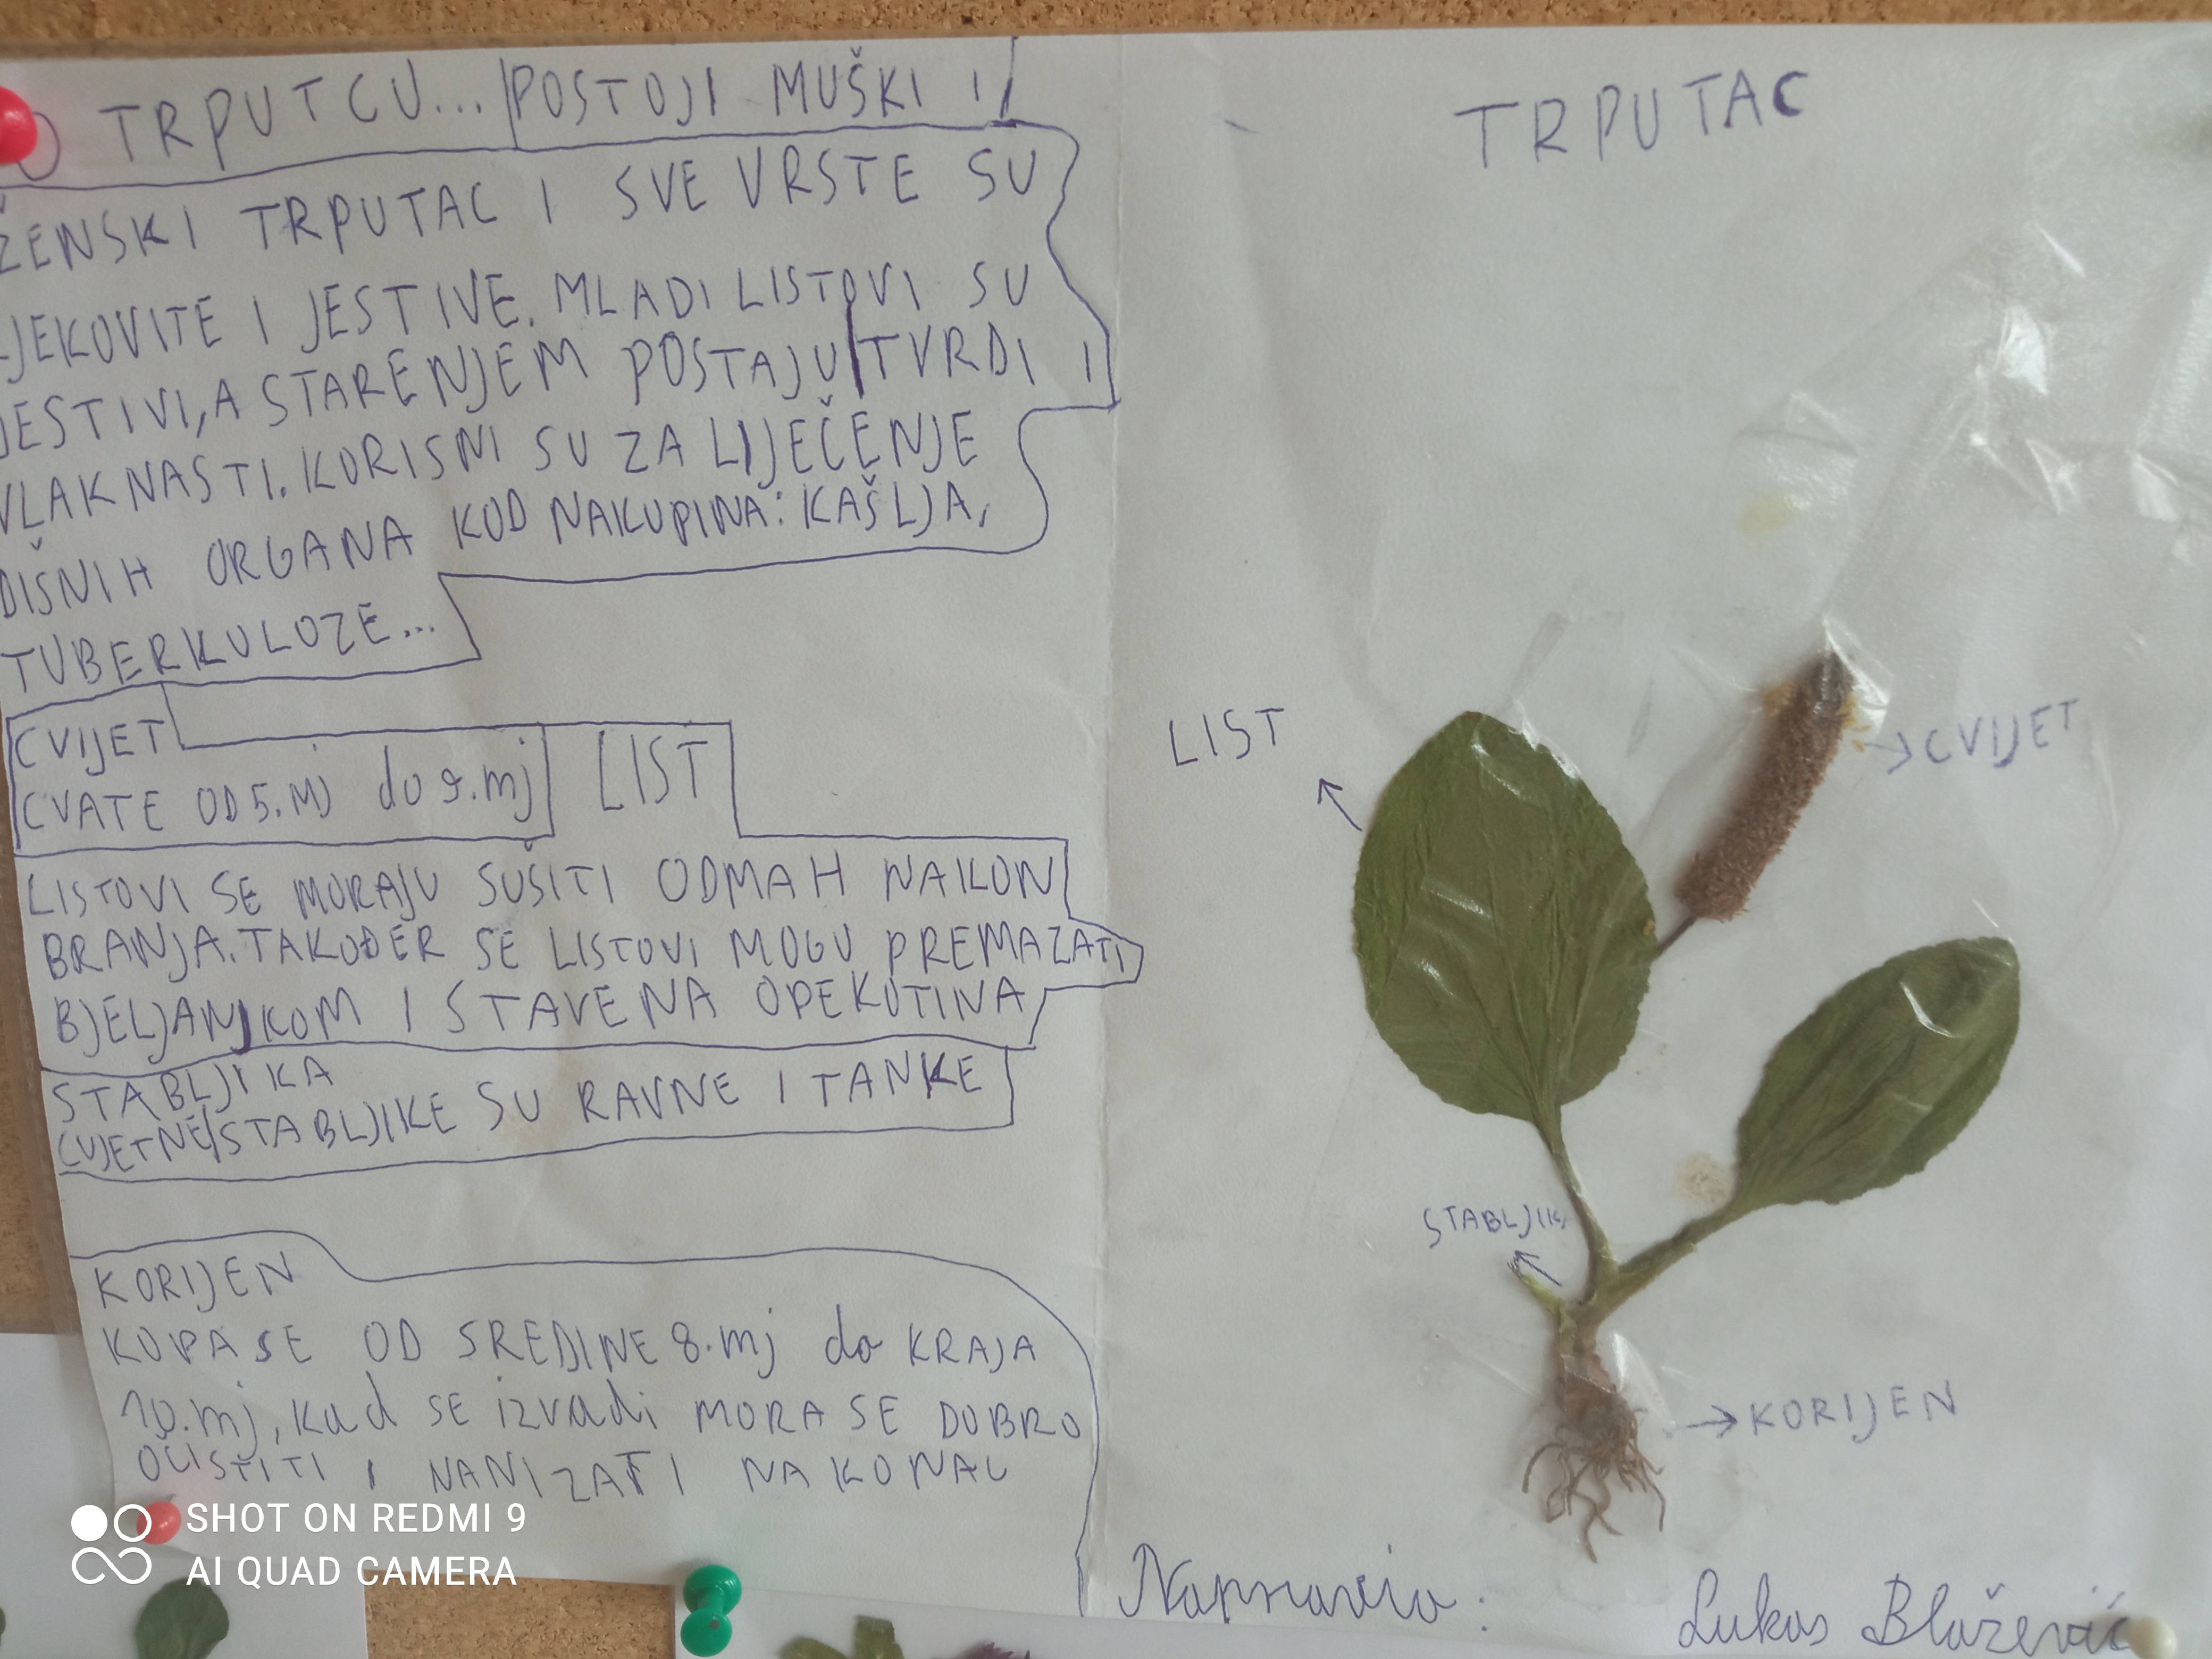 O TRPUTCU... POSTOJI MUŠKI I
ŽENSKI TRPUTAC I SVE VRSTE SU
LJEKOVITE I JESTIVE. MLADI LISTOVI SU
JESTIVI, A STARENJEM POSTAJU TVRDI I
VLAKNASTI. KORISNI SU ZA LIJEČENJE
DIŠNIH ORGANA KOD NAKUPINA: KAŠLJA,
TUBERKULOZE...
CVIJET
CVATE OD 5. Mj do 9. mj
LIST
LISTOVI SE MORAJU SUŠITI ODMAH NAKON
BRANJA. TAKOĐER SE LISTOVI MOGU PREMAZATI
BJELJANJKOM I STAVE NA OPEKUTINA
STABLJIKA
CVJETNE STABLJIKE SU RAVNE I TANKE
KORIJEN
KOPA SE OD SREDINE 8. mj do KRAJA
10. mj, kad SE izvadi MORA SE DOBRO
OČISTITI I NANIZATI NA KONAC
TRPUTAC
LIST
CVIJET
STABLJIK
KORIJEN
Napravio: Lukas Blažević
SHOT ON REDMI 9
AI QUAD CAMERA